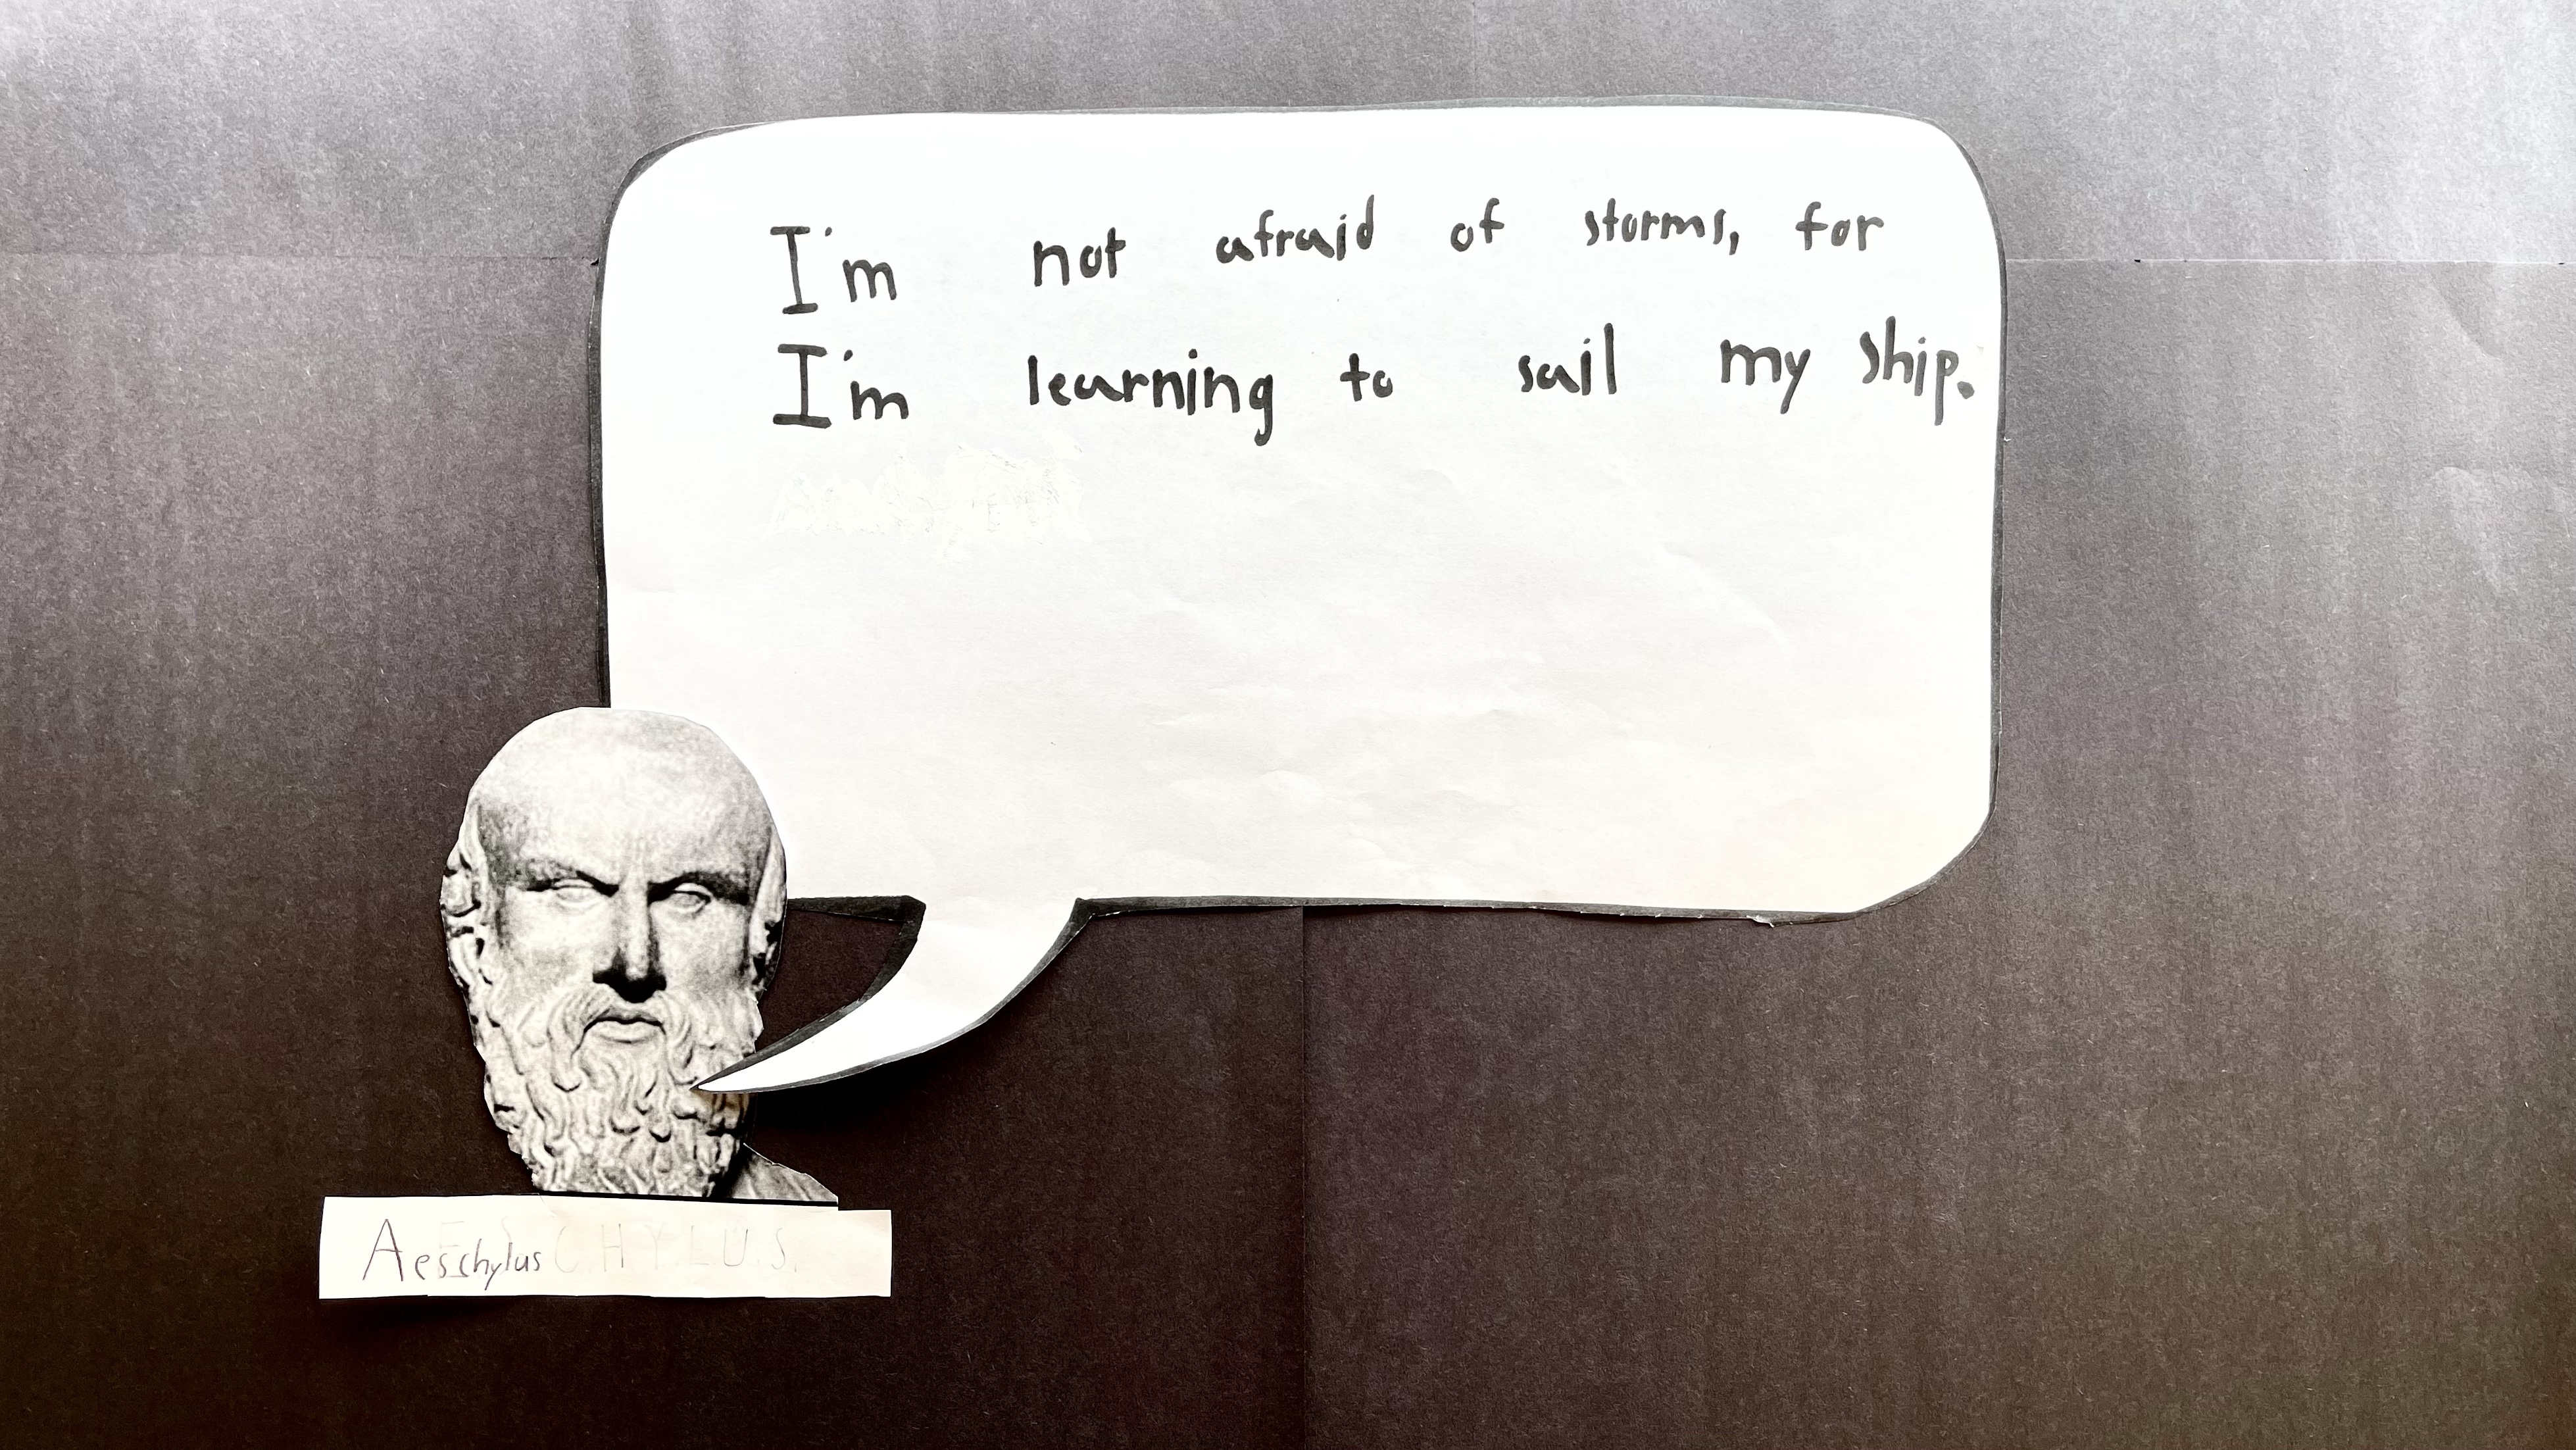 I'm not afraid of storms, for
I'm learning to sail my ship.
Aeschylus